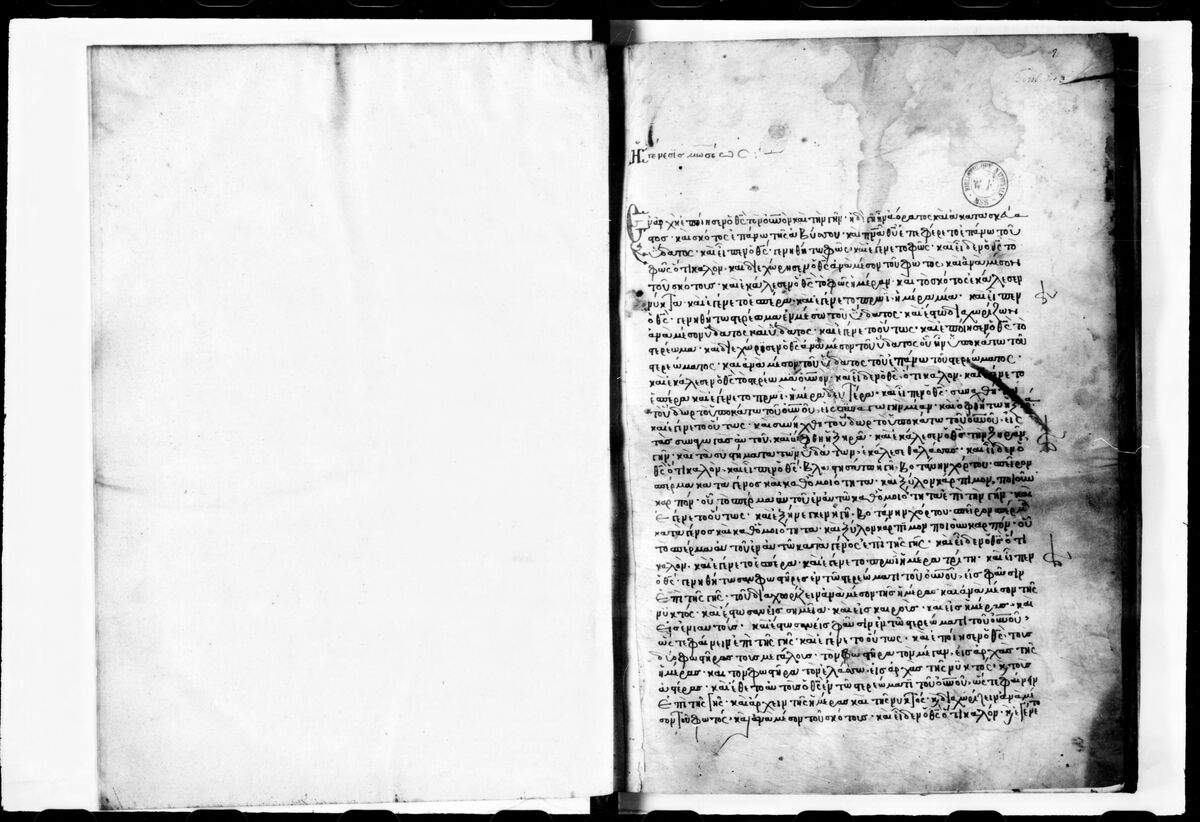 Ἡ γένεσις μωσέως
Ἐν ἀρχῇ ἐποίησεν ὁ θς τὸν οὐνον καὶ τὴν γῆν. ἡ δὲ γῆ ἦν ἀόρατος καὶ ἀκατασκεύα
στος. καὶ σκότος ἐπάνω τῆς ἀβύσσου. καὶ πνα θυ ἐπεφέρετο ἐπάνω τοῦ
ὕδατος. καὶ εἶπεν ὁ θς. γενηθήτω φῶς. καὶ ἐγένετο φῶς. καὶ εἶδεν ὁ θς τὸ
φῶς ὅτι καλόν. καὶ διεχώρησεν ὁ θς ἀνὰ μέσον τοῦ φωτὸς. καὶ ἀνὰ μέσον
τοῦ σκότους. καὶ ἐκάλεσεν ὁ θς τὸ φῶς ἡμέραν. καὶ τὸ σκότος ἐκάλεσεν
νύκτα. καὶ ἐγένετο ἑσπέρα. καὶ ἐγένετο πρωῒ. ἡμέρα μία. καὶ εἶπεν
ὁ θς. γενηθήτω στερέωμα ἐν μέσω τοῦ ὕδατος. καὶ ἔστω διαχωρίζων
ἀνὰ μέσον ὕδατος καὶ ὕδατος. καὶ ἐγένετο οὕτως. καὶ ἐποίησεν ὁ θς τὸ
στερέωμα. καὶ διεχώρησεν ὁ θς ἀνὰ μέσον τοῦ ὕδατος οὗ ἦν ὑποκάτω τοῦ
στερεώματος. καὶ ἀνὰ μέσον τοῦ ὕδατος τοῦ ἐπάνω τοῦ στερεώματος.
καὶ ἐκάλεσεν ὁ θς τὸ στερέωμα οὐνον. καὶ εἶδεν ὁ θς ὅτι καλόν. καὶ ἐγένετο
ἑσπέρα καὶ ἐγένετο πρωῒ. ἡμέρα δευτέρα. καὶ εἶπεν ὁ θς. συναχθήτω
τὸ ὕδωρ τὸ ὑποκάτω τοῦ οὐνοῦ εἰς συναγωγὴν μίαν. καὶ ὀφθήτω ἡ ξηρά.
καὶ ἐγένετο οὕτως. καὶ συνήχθη τὸ ὕδωρ τὸ ὑποκάτω τοῦ οὐνοῦ εἰς
τὰς συναγωγὰς αὐτῶν. καὶ ὤφθη ἡ ξηρά. καὶ ἐκάλεσεν ὁ θς τὴν ξηρὰν
γῆν. καὶ τὰ συστήματα τῶν ὑδάτων ἐκάλεσε θαλάσσας. καὶ εἶδεν ὁ
θς ὅτι καλόν. καὶ εἶπεν ὁ θς. βλαστησάτω ἡ γῆ βοτάνην χόρτου. σπεῖρον
σπέρμα κατὰ γένος καὶ καθ' ὁμοιότητα. καὶ ξύλον κάρπιμον ποιοῦν
καρπόν. οὗ τὸ σπέρμα αὐτοῦ ἐν αὐτῶ καθ' ὁμοιότητα ἐπὶ τῆς γῆς. καὶ
ἐγένετο οὕτως. καὶ ἐξήνεγκεν ἡ γῆ βοτάνην χόρτου. σπεῖρον σπέρμα
κατὰ γένος καὶ καθ' ὁμοιότητα. καὶ ξύλον κάρπιμον ποιοῦν καρπόν. οὗ
τὸ σπέρμα αὐτοῦ ἐν αὐτῶ κατὰ γένος ἐπὶ τῆς γῆς. καὶ εἶδεν ὁ θς ὅτι
καλόν. καὶ ἐγένετο ἑσπέρα. καὶ ἐγένετο πρωῒ ἡμέρα τρίτη. καὶ εἶπεν
ὁ θς. γενηθήτωσαν φωστῆρες ἐν τῶ στερεώματι τοῦ οὐνοῦ εἰς φαῦσιν
ἐπὶ τῆς γῆς. τοῦ διαχωρίζειν ἀνὰ μέσον τῆς ἡμέρας καὶ ἀνὰ μέσον τῆς
νυκτός. καὶ ἔστωσαν εἰς σημεῖα. καὶ εἰς καιρούς. καὶ εἰς ἡμέρας. καὶ
εἰς ἐνιαυτούς. καὶ ἔστωσαν εἰς φαῦσιν ἐν τῶ στερεώματι τοῦ οὐνοῦ
ὥστε φαίνειν ἐπὶ τῆς γῆς. καὶ ἐγένετο οὕτως. καὶ ἐποίησεν ὁ θς. τοὺς
δύο φωστῆρας τοὺς μεγάλους. τὸν φωστῆρα τὸν μέγαν εἰς ἀρχὰς τῆς
ἡμέρας. καὶ τὸν φωστῆρα τὸν ἐλάσσω εἰς ἀρχὰς τῆς νυκτός. καὶ τοὺς
ἀστέρας. καὶ ἔθετο αὐτοὺς ὁ θς ἐν τῶ στερεώματι τοῦ οὐνοῦ ὥστε φαίνειν
ἐπὶ τῆς γῆς. καὶ ἄρχειν τῆς ἡμέρας καὶ τῆς νυκτός. καὶ διαχωρίζειν ἀνὰ μέ
σον τοῦ φωτὸς. καὶ ἀνὰ μέσον τοῦ σκότους. καὶ εἶδεν ὁ θς ὅτι καλόν. καὶ ἐγένετο